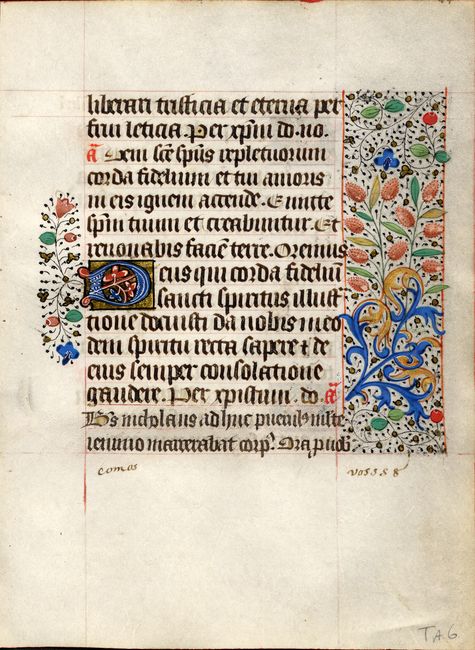 liberari tristicia et eterna per
frui leticia. Per xp̄m do. no.
a Veni sc̄e sp̄us repletuorum
corda fidelium et tui amoris
in eis ignem accende. Emitte
sp̄m tuum et creabuntur. Et
renovabis faciē terre. Oremus
Deus qui corda fideliū
sancti spiritus illust
tione docuisti da nobis in eo
dem spiritu recta sapere et de
eius semper consolatione
gaudere. Per xpistum. do. a
Bs nicholaus adhuc puerulus
ieiunio macerabat corp9. Ora
comos
TA6